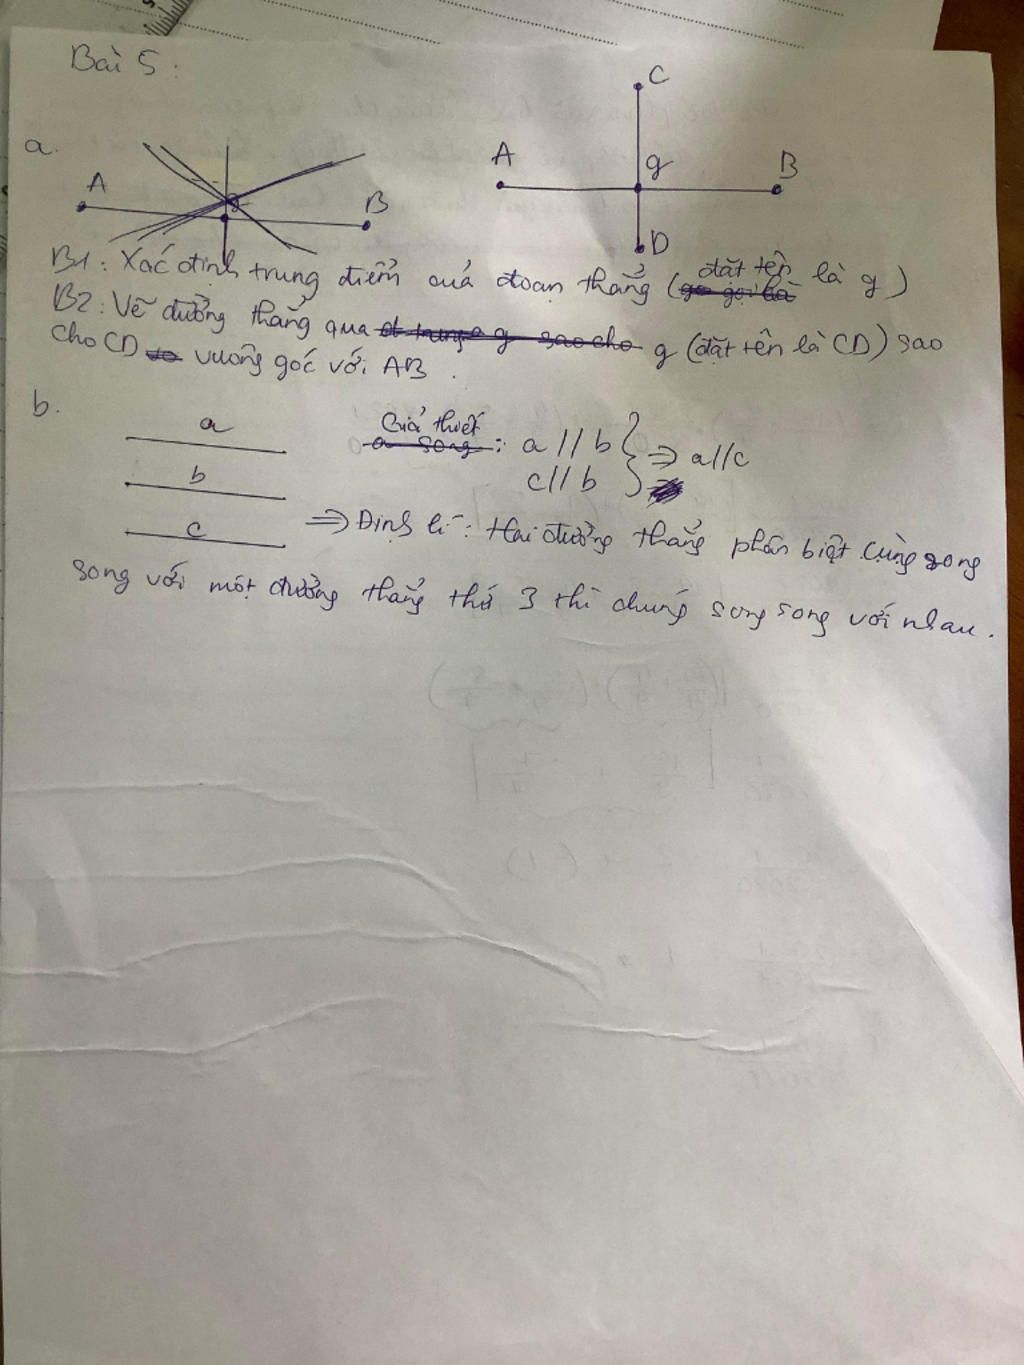 Bài 5:
a.
A B
A C g B D
B1: Xác định trung điểm của đoạn thẳng (đặt tên là g)
B2: Vẽ đường thẳng qua g (đặt tên là CD) sao
cho CD vuông góc với AB.
b.
a
b
c
Giả thiết: a // b
c // b } => a//c
=> Định lí: Hai đường thẳng phân biệt cùng song
song với một đường thẳng thứ 3 thì chúng song song với nhau.